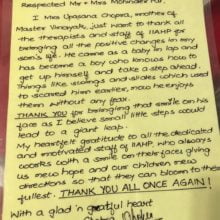 Respected Mr & Mrs Mohinder Kr.
I Mrs Upasana Chopra, mother of
Master Vinayak, just want to thank all
the therapists and staff of IIAHP for
bringing all the positive changes in my
son's life. He came as a baby in lap and
has become a boy who knows how to
get up himself and take a step ahead.
Things like swings and slides which used
to scared him earlier, now he enjoys
them without any fear.
THANK YOU for bringing that smile on his
face as I believe small little steps could
lead to a giant leap.
My heartfelt gratitude to all the dedicated
and motivated staff of IIAHP who always
works with a smile on their faces giving
us new hope and our children new
directions so that they can bloom to the
fullest. THANK YOU ALL ONCE AGAIN!
With a glad n grateful heart